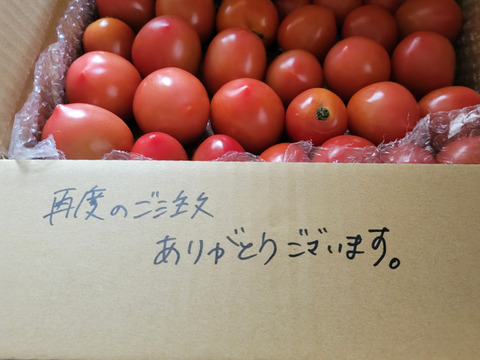 再度のご注文
ありがとうございます。